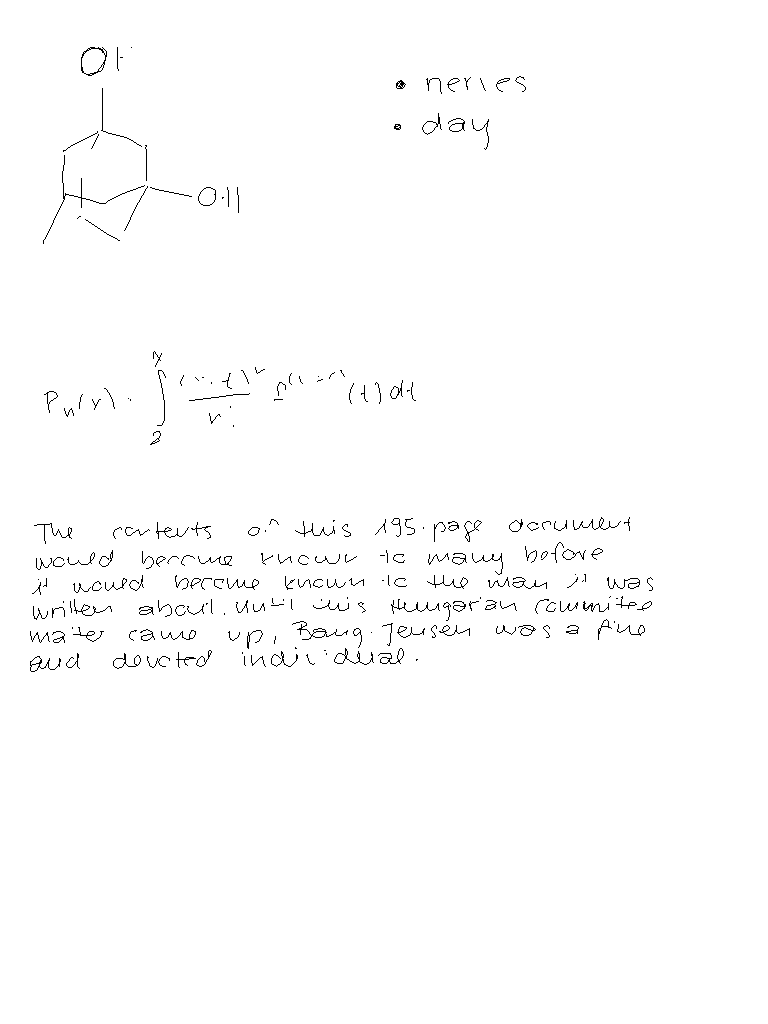 OH
• neries
• day
OH
Pn(x) = ∫ (t) dt
The contents of this 195-page document
would become known to many before
it would become known to the man it was
written about. Until this Hungarian committee
matter came up, Bang-Jensen was a fine
and devoted individual.